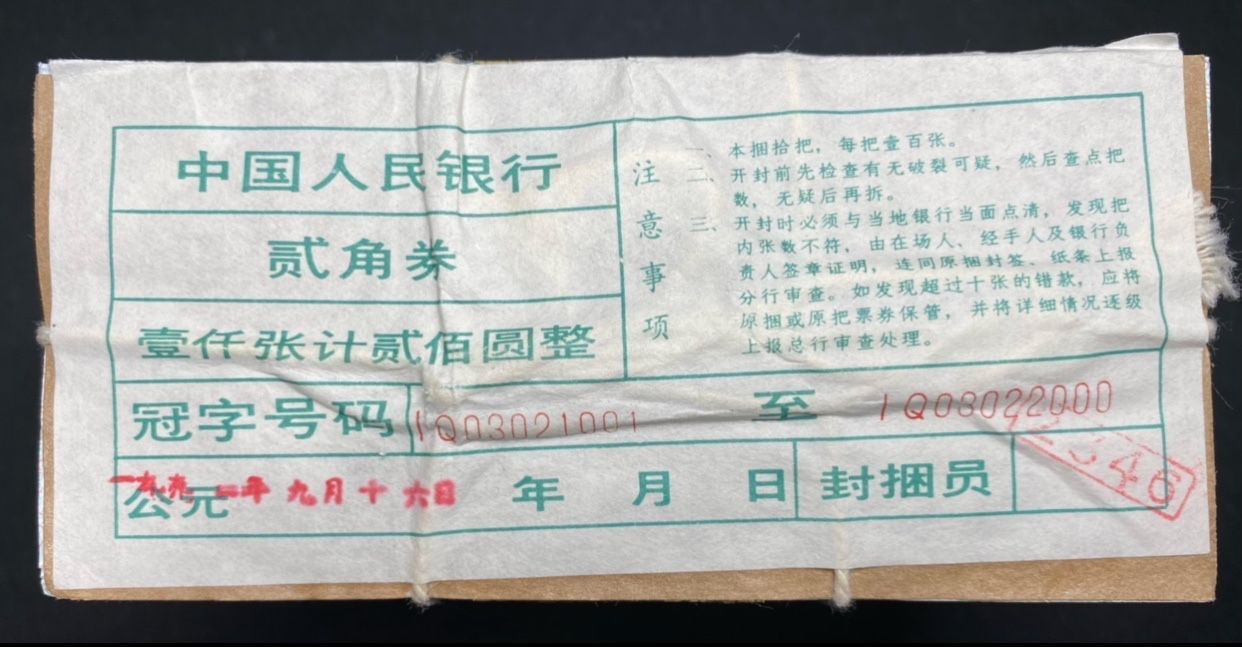 中国人民银行
贰角券
壹仟张计贰佰圆整
注意事项
一、本捆拾把，每把壹百张。
二、开封前先检查有无破裂可疑，然后查点把
数，无疑后再拆。
三、开封时必须与当地银行当面点清，发现把
内张数不符，由在场人、经手人及银行负
责人签章证明，连同原捆封签、纸条上报
分行审查。如发现超过十张的错款，应将
原捆或原把票券保管，并将详细情况逐级
上报总行审查处理。
冠字号码 IQ03021001 至 IQ08022000
公元 年 月 日 封捆员
一九九二年九月十六日
12346